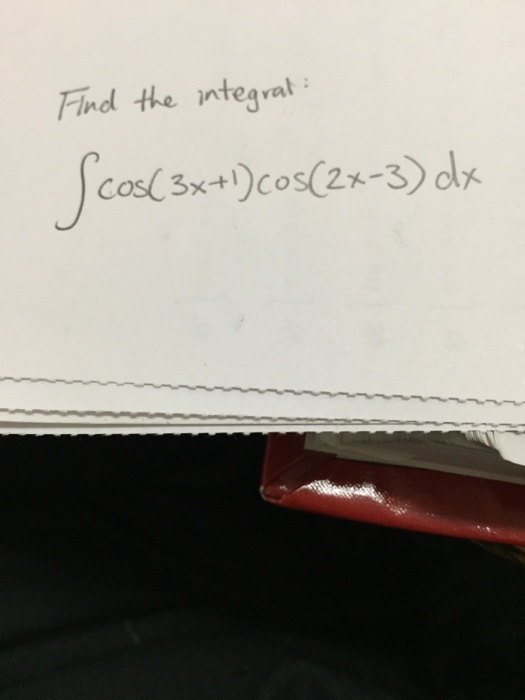 Find the integral:
∫cos(3x+1)cos(2x-3) dx